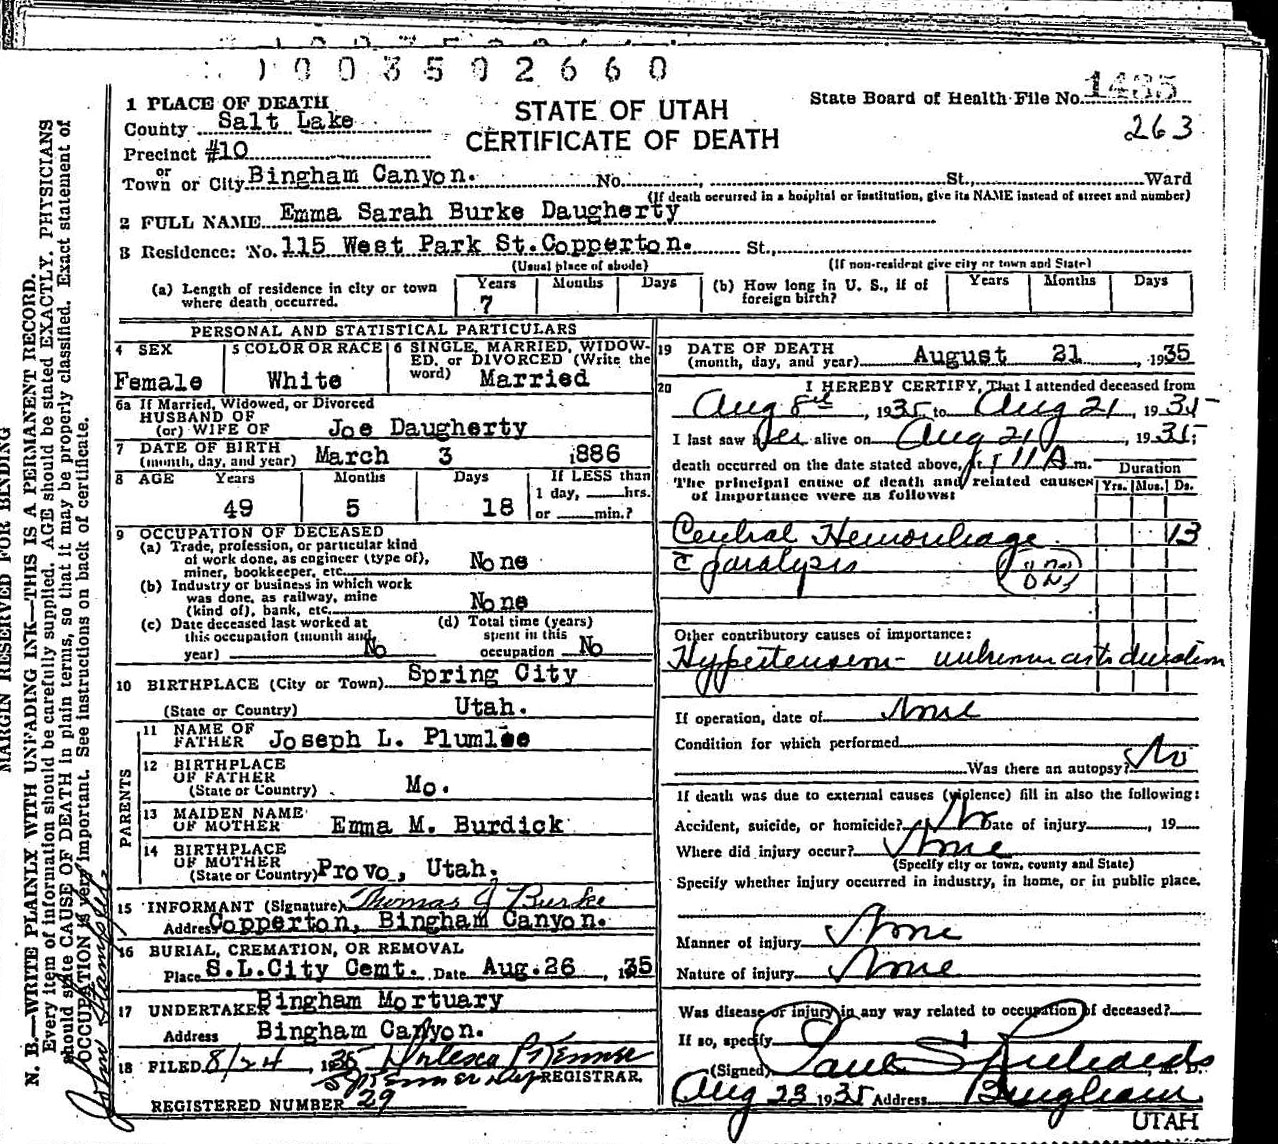 1003502660
1 PLACE OF DEATH
County Salt Lake
Precinct #10
or
Town or City Bingham Canyon. No. , St., Ward
(If death occurred in a hospital or institution, give its NAME instead of street and number)
STATE OF UTAH
CERTIFICATE OF DEATH
State Board of Health File No. 1435
263
2 FULL NAME Emma Sarah Burke Daugherty
3 Residence: No. 115 West Park St. Copperton. St.,
(Usual place of abode) (If non-resident give city or town and State)
(a) Length of residence in city or town where death occurred. Years 7 Months Days (b) How long in U. S., if of foreign birth? Years Months Days
PERSONAL AND STATISTICAL PARTICULARS
4 SEX Female
5 COLOR OR RACE White
6 SINGLE, MARRIED, WIDOWED, or DIVORCED (Write the word) Married
6a If Married, Widowed, or Divorced
HUSBAND OF
(or) WIFE OF Joe Daugherty
7 DATE OF BIRTH
(month, day, and year) March 3 1886
8 AGE Years 49 Months 5 Days 18 If LESS than 1 day, hrs. or min.?
9 OCCUPATION OF DECEASED
(a) Trade, profession, or particular kind of work done, as engineer (type of), miner, bookkeeper, etc. None
(b) Industry or business in which work was done, as railway, mine (kind of), bank, etc. None
(c) Date deceased last worked at this occupation (month and year) No
(d) Total time (years) spent in this occupation No
10 BIRTHPLACE (City or Town) Spring City
(State or Country) Utah.
PARENTS
11 NAME OF FATHER Joseph L. Plumlee
12 BIRTHPLACE OF FATHER
(State or Country) Mo.
13 MAIDEN NAME OF MOTHER Emma M. Burdick
14 BIRTHPLACE OF MOTHER
(State or Country) Provo, Utah.
15 INFORMANT (Signature) Thomas J Burke
Address Copperton, Bingham Canyon.
16 BURIAL, CREMATION, OR REMOVAL
Place S.L.City Cemt. Date Aug.26, 1935
17 UNDERTAKER Bingham Mortuary
Address Bingham Canyon.
18 FILED 8/24, 1935
REGISTRAR.
REGISTERED NUMBER 29
19 DATE OF DEATH
(month, day, and year) August 21 1935
20 I HEREBY CERTIFY, That I attended deceased from
Aug 8th, 1935 to Aug 21, 1935
I last saw her alive on Aug 21, 1935;
death occurred on the date stated above, at 11 A m.
The principal cause of death and related causes of importance were as follows: Duration Yrs. Mos. Ds.
Cerebral Hemorrhage 13
c paralysis
Other contributory causes of importance:
Hypertension - unknown as to duration
If operation, date of None
Condition for which performed
Was there an autopsy? No
If death was due to external causes (violence) fill in also the following:
Accident, suicide, or homicide? No Date of injury , 19
Where did injury occur? None
(Specify city or town, county and State)
Specify whether injury occurred in industry, in home, or in public place.
Manner of injury None
Nature of injury None
Was disease or injury in any way related to occupation of deceased?
If so, specify
(Signed) Paul S Richards M. D.
Aug 23 1935 Address Bingham
UTAH
MARGIN RESERVED FOR BINDING
N. B.—WRITE PLAINLY WITH UNFADING INK—THIS IS A PERMANENT RECORD.
Every item of information should be carefully supplied. AGE should be stated EXACTLY. PHYSICIANS
should state CAUSE OF DEATH in plain terms, so that it may be properly classified. Exact statement of
OCCUPATION is very important. See instructions on back of certificate.